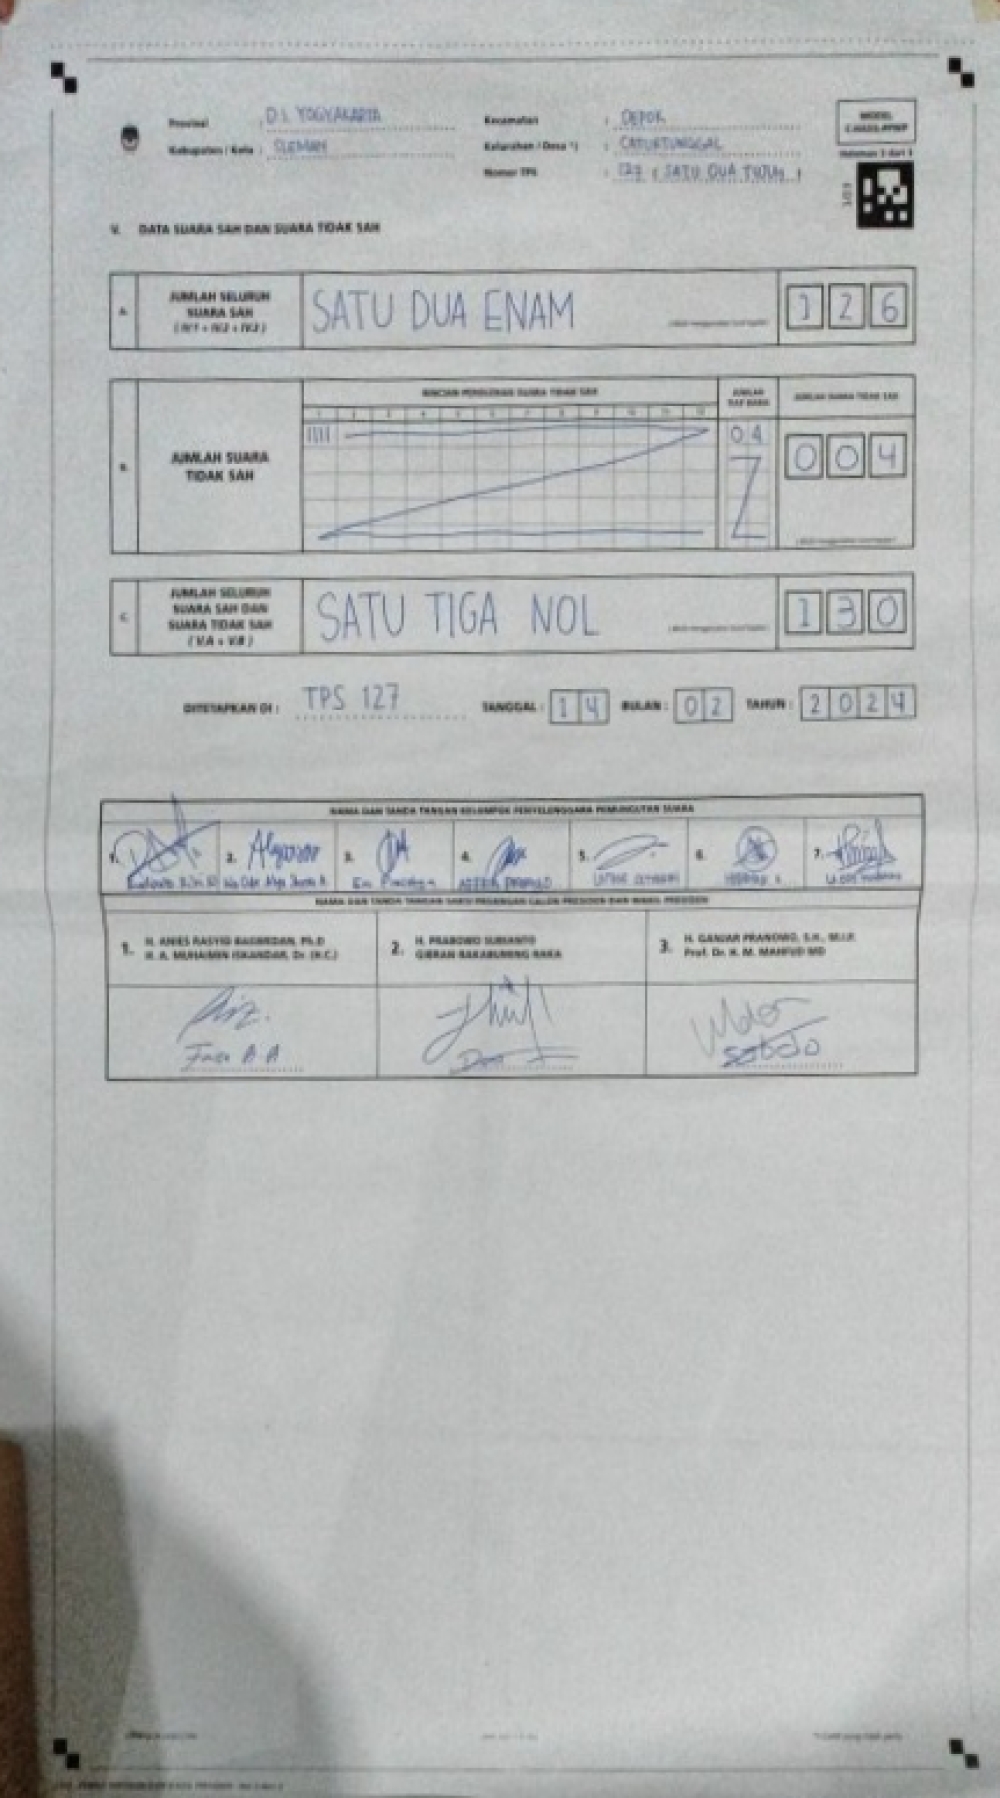 Provinsi : D.I. YOGYAKARTA
Kabupaten / Kota : SLEMAN
Kecamatan : DEPOK
Kelurahan / Desa *) : CATURTUNGGAL
Nomor TPS : 127 ( SATU DUA TUJUH )
MODEL
C.HASIL-PPWP
Halaman 3 dari 3
V. DATA SUARA SAH DAN SUARA TIDAK SAH
A. JUMLAH SELURUH SUARA SAH
( IV.1 + IV.2 + IV.3 )
SATU DUA ENAM
1 2 6
B. JUMLAH SUARA TIDAK SAH
RINCIAN PEROLEHAN SUARA TIDAK SAH
1 2 3 4 5 6 7 8 9 10 11 12
JUMLAH TIAP BARIS
04
JUMLAH SUARA TIDAK SAH
0 0 4
C. JUMLAH SELURUH SUARA SAH DAN SUARA TIDAK SAH
( V.A + V.B )
SATU TIGA NOL
1 3 0
DITETAPKAN DI : TPS 127 TANGGAL : 1 4 BULAN : 0 2 TAHUN : 2 0 2 4
NAMA DAN TANDA TANGAN KELOMPOK PENYELENGGARA PEMUNGUTAN SUARA
1. 2. 3. 4. 5. 6. 7.
NAMA DAN TANDA TANGAN SAKSI PASANGAN CALON PRESIDEN DAN WAKIL PRESIDEN
1. H. ANIES RASYID BASWEDAN, Ph.D
H. A. MUHAIMIN ISKANDAR, Dr. (H.C.)
2. H. PRABOWO SUBIANTO
GIBRAN RAKABUMING RAKA
3. H. GANJAR PRANOWO, S.H., M.I.P.
Prof. Dr. H. M. MAHFUD MD